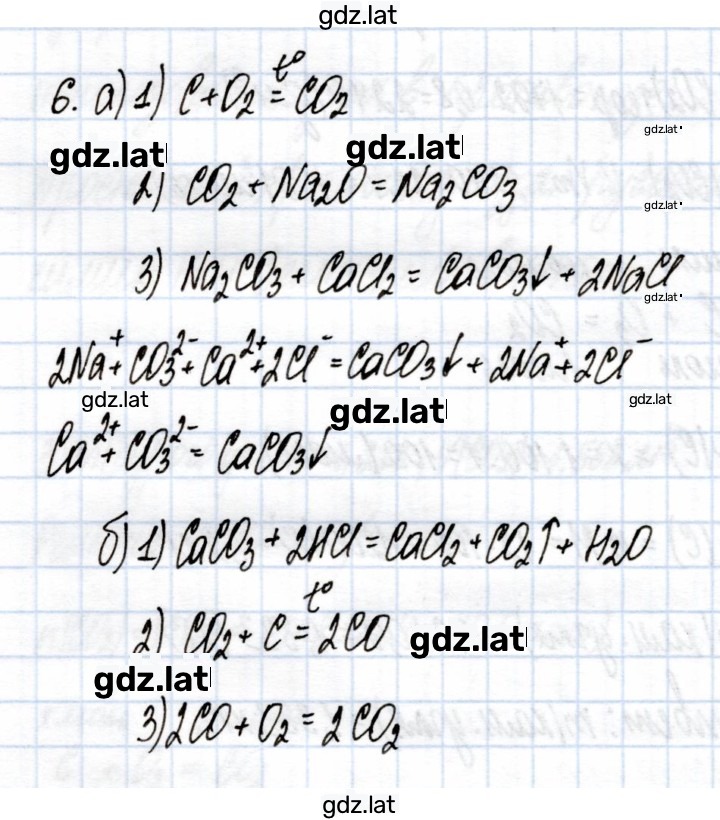 gdz.lat
6. а) 1) C + O₂ =^t° CO₂
gdz.lat
gdz.lat gdz.lat
2) CO₂ + Na₂O = Na₂CO₃
gdz.lat
3) Na₂CO₃ + CaCl₂ = CaCO₃↓ + 2NaCl
gdz.lat
2Na⁺ + CO₃²⁻ + Ca²⁺ + 2Cl⁻ = CaCO₃↓ + 2Na⁺ + 2Cl⁻
gdz.lat gdz.lat gdz.lat
Ca²⁺ + CO₃²⁻ = CaCO₃↓
б) 1) CaCO₃ + 2HCl = CaCl₂ + CO₂↑ + H₂O
2) CO₂ + C =^t° 2CO gdz.lat
gdz.lat
3) 2CO + O₂ = 2CO₂
gdz.lat